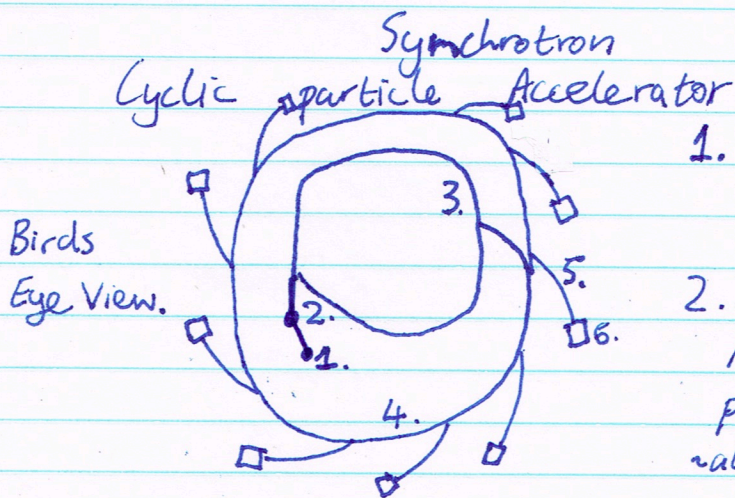 Synchrotron
Cyclic particle Accelerator
1.
3.
Birds
Eye View.
5.
2.
2.
6.
1.
4.